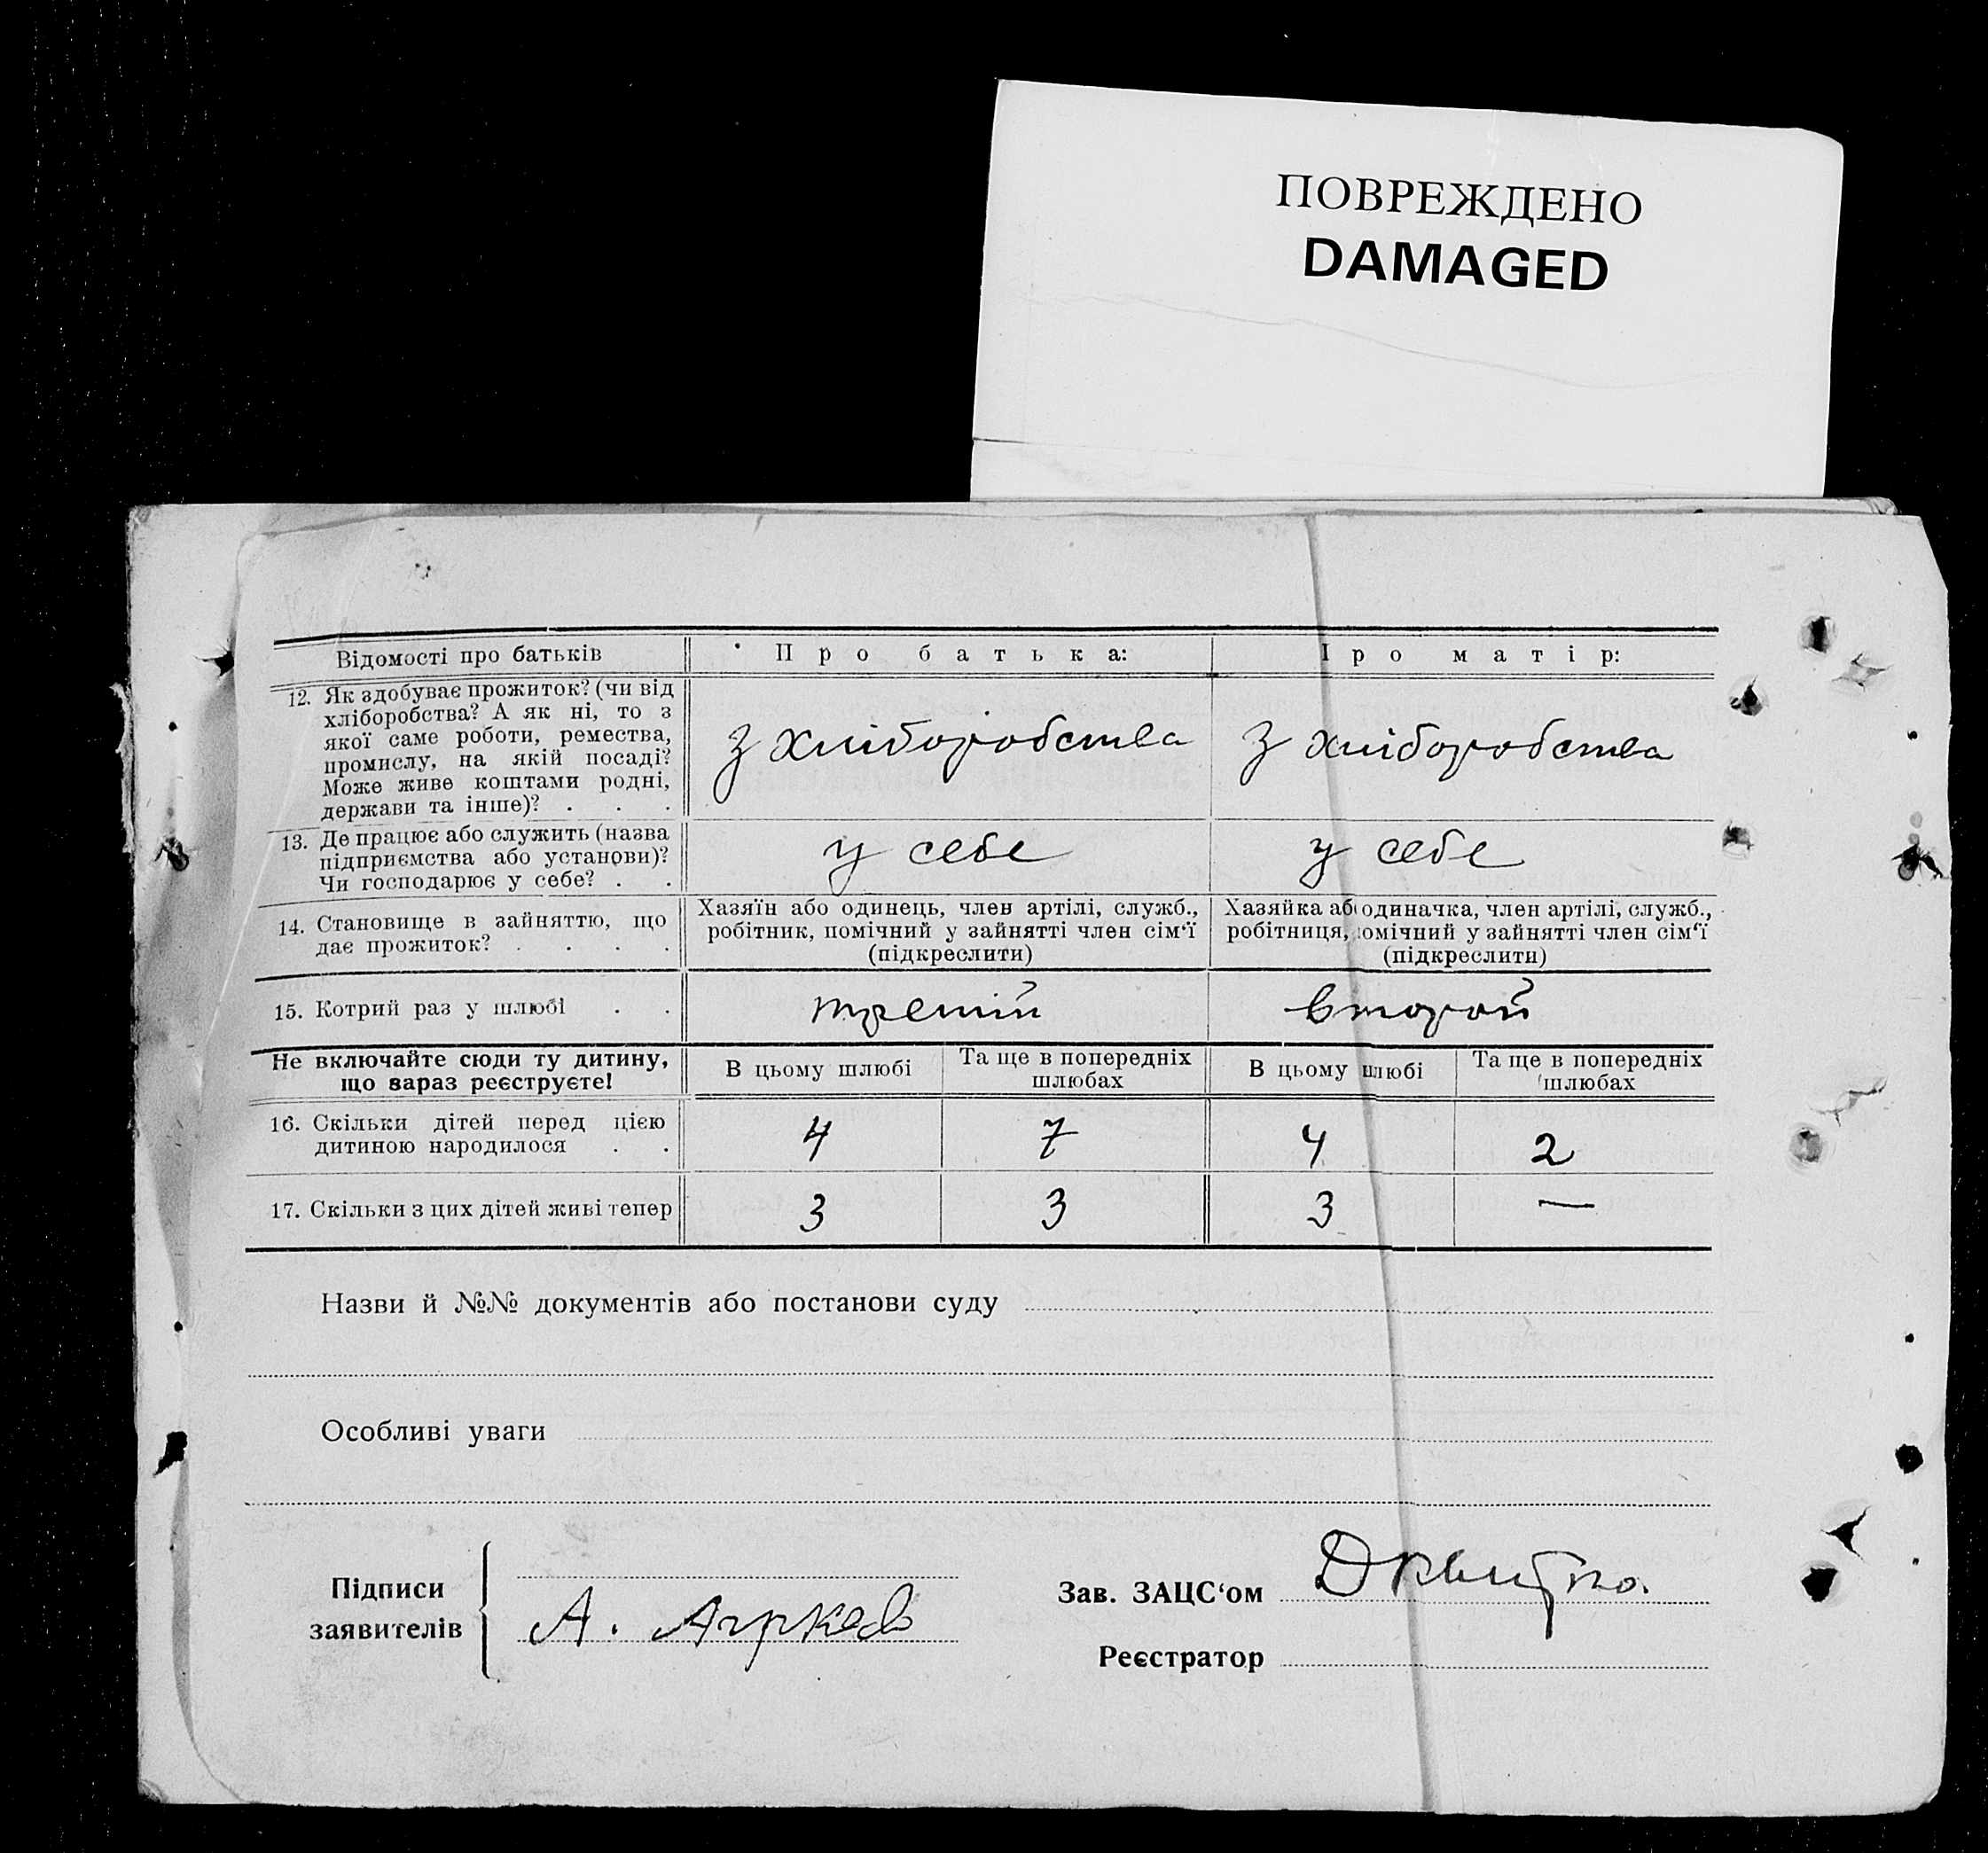 ПОВРЕЖДЕНО
DAMAGED
Відомості про батьків
Про батька:
Про матір:
12. Як здобуває прожиток? (чи від
хліборобства? А як ні, то з
якої саме роботи, ремества,
промислу, на якій посаді?
Може живе коштами родні,
держави та інше)? . . .
З хліборобства
З хліборобства
13. Де працює або служить (назва
підприємства або установи)?
Чи господарює у себе? . .
у себе
у себе
14. Становище в зайняттю, що
дає прожиток? . . . .
Хазяїн або одинець, член артілі, служб.,
робітник, помічний у зайнятті член сім‘ї
(підкреслити)
Хазяйка або одиначка, член артілі, служб.,
робітниця, помічний у зайнятті член сім‘ї
(підкреслити)
15. Котрий раз у шлюбі . .
третій
второй
Не включайте сюди ту дитину,
що зараз реєструєте!
В цьому шлюбі
Та ще в попередніх
шлюбах
В цьому шлюбі
Та ще в попередніх
шлюбах
16. Скільки дітей перед цією
дитиною народилося . .
4
7
4
2
17. Скільки з цих дітей живі тепер
3
3
3
—
Назви й №№ документів або постанови суду
Особливі уваги
Підписи
заявителів
А.
Зав. ЗАЦС‘ом
Реєстратор